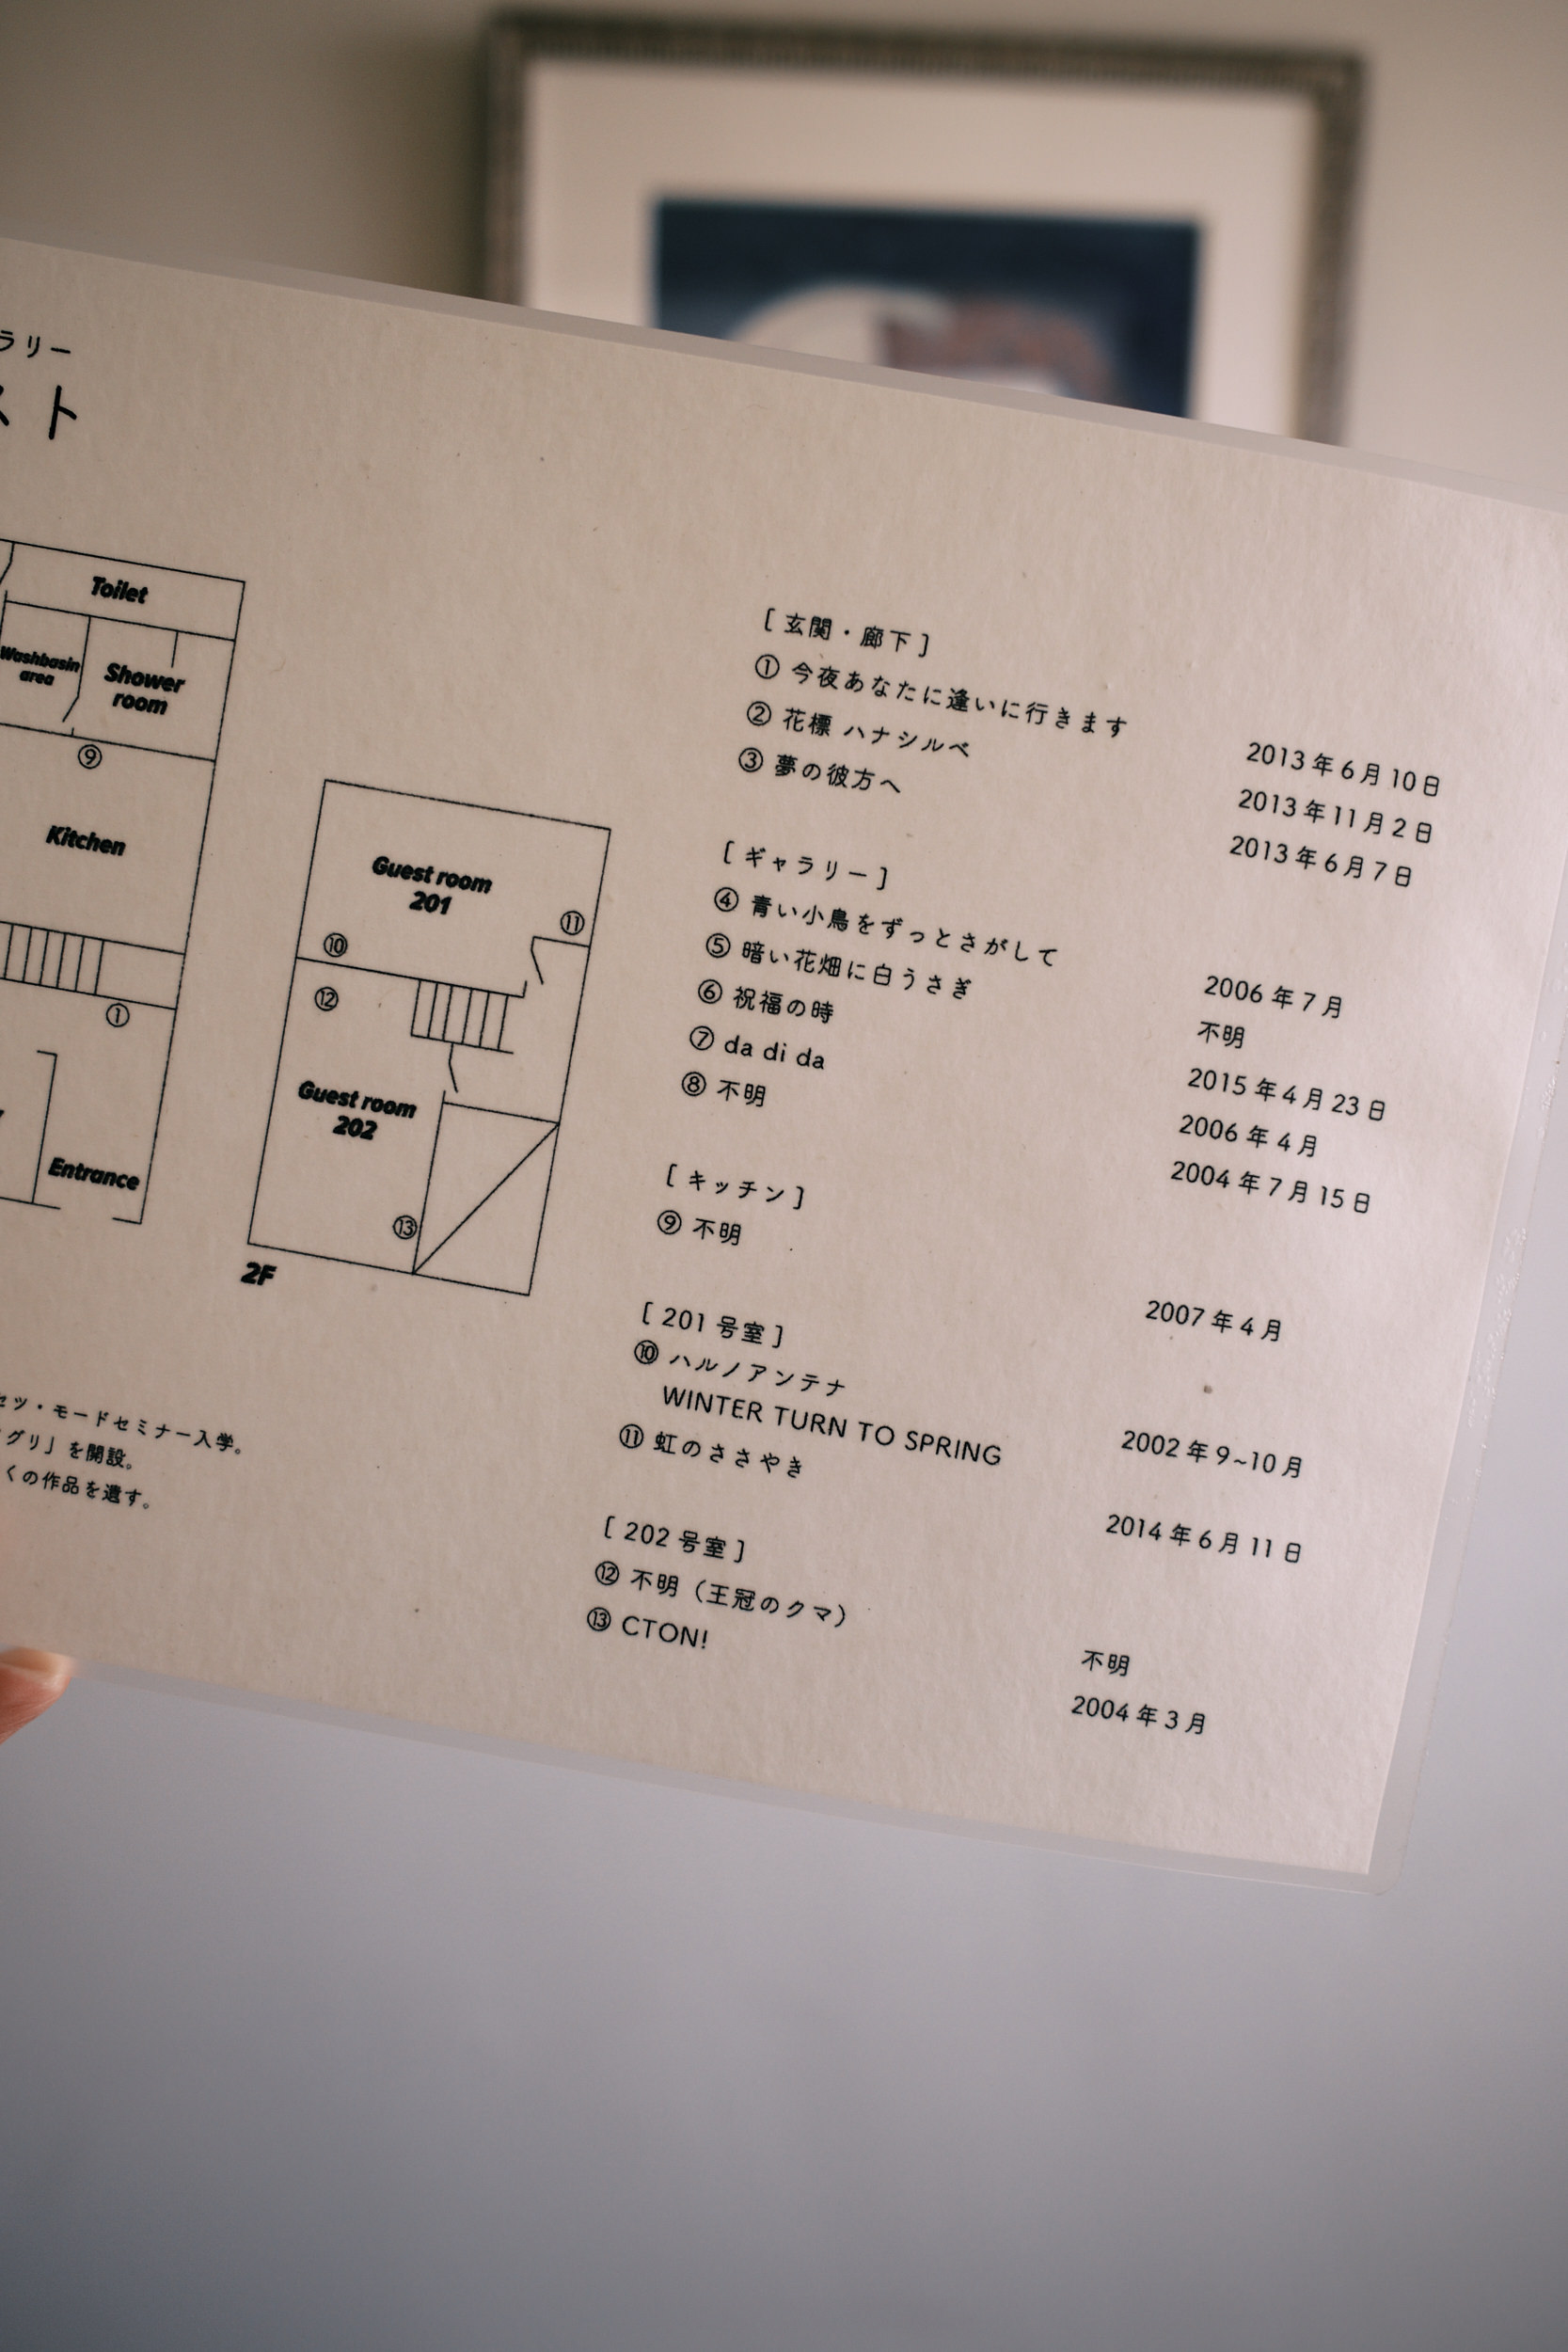 ラリー
スト
Toilet
Washbasin
area
Shower
room
⑨
Kitchen
①
Entrance
Guest room
201
⑪
⑩
⑫
Guest room
202
⑬
2F
セツ・モードセミナー入学。
グリ」を開設。
くの作品を遺す。
[ 玄関・廊下 ]
① 今夜あなたに逢いに行きます 2013年6月10日
② 花標 ハナシルベ 2013年11月2日
③ 夢の彼方へ 2013年6月7日
[ ギャラリー ]
④ 青い小鳥をずっとさがして 2006年7月
⑤ 暗い花畑に白うさぎ 不明
⑥ 祝福の時 2015年4月23日
⑦ da di da 2006年4月
⑧ 不明 2004年7月15日
[ キッチン ]
⑨ 不明 2007年4月
[ 201号室 ]
⑩ ハルノアンテナ 2002年9~10月
WINTER TURN TO SPRING
⑪ 虹のささやき 2014年6月11日
[ 202号室 ]
⑫ 不明（王冠のクマ） 不明
⑬ CTON! 2004年3月